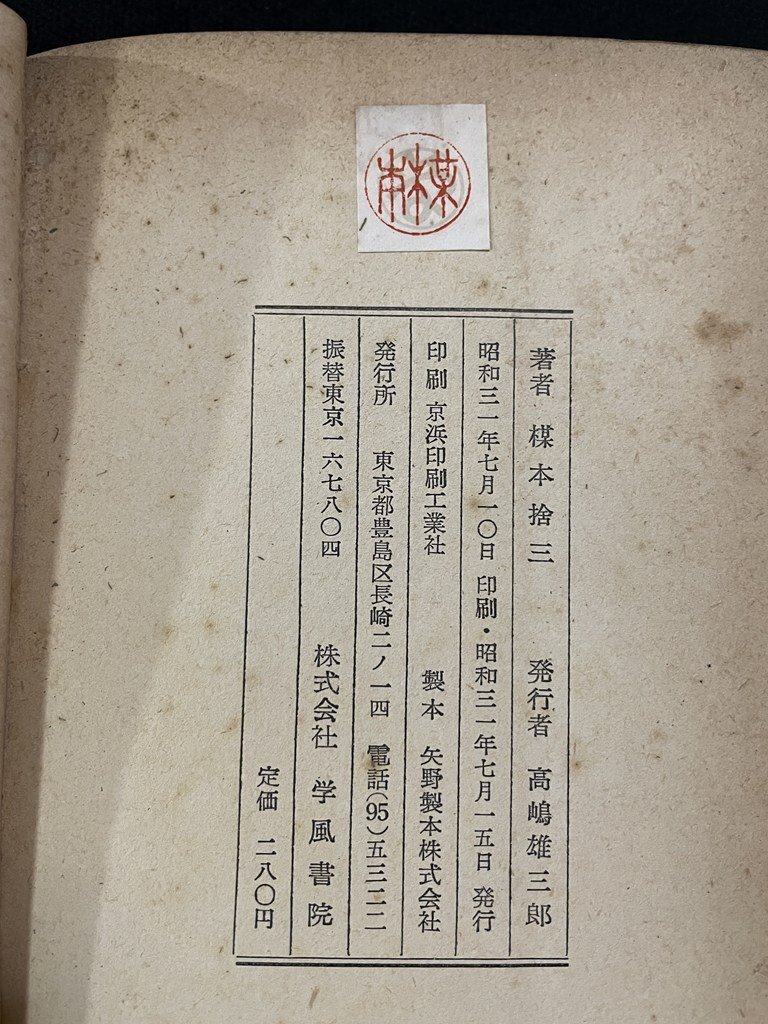 楳本
著者 楳本捨三 発行者 高嶋雄三郎
昭和三一年七月一〇日 印刷・昭和三一年七月一五日 発行
印刷 京浜印刷工業社 製本 矢野製本株式会社
発行所 東京都豊島区長崎二ノ一四 電話(95)五三二二
振替東京一六七八〇四 株式会社 学風書院
定価 二八〇円